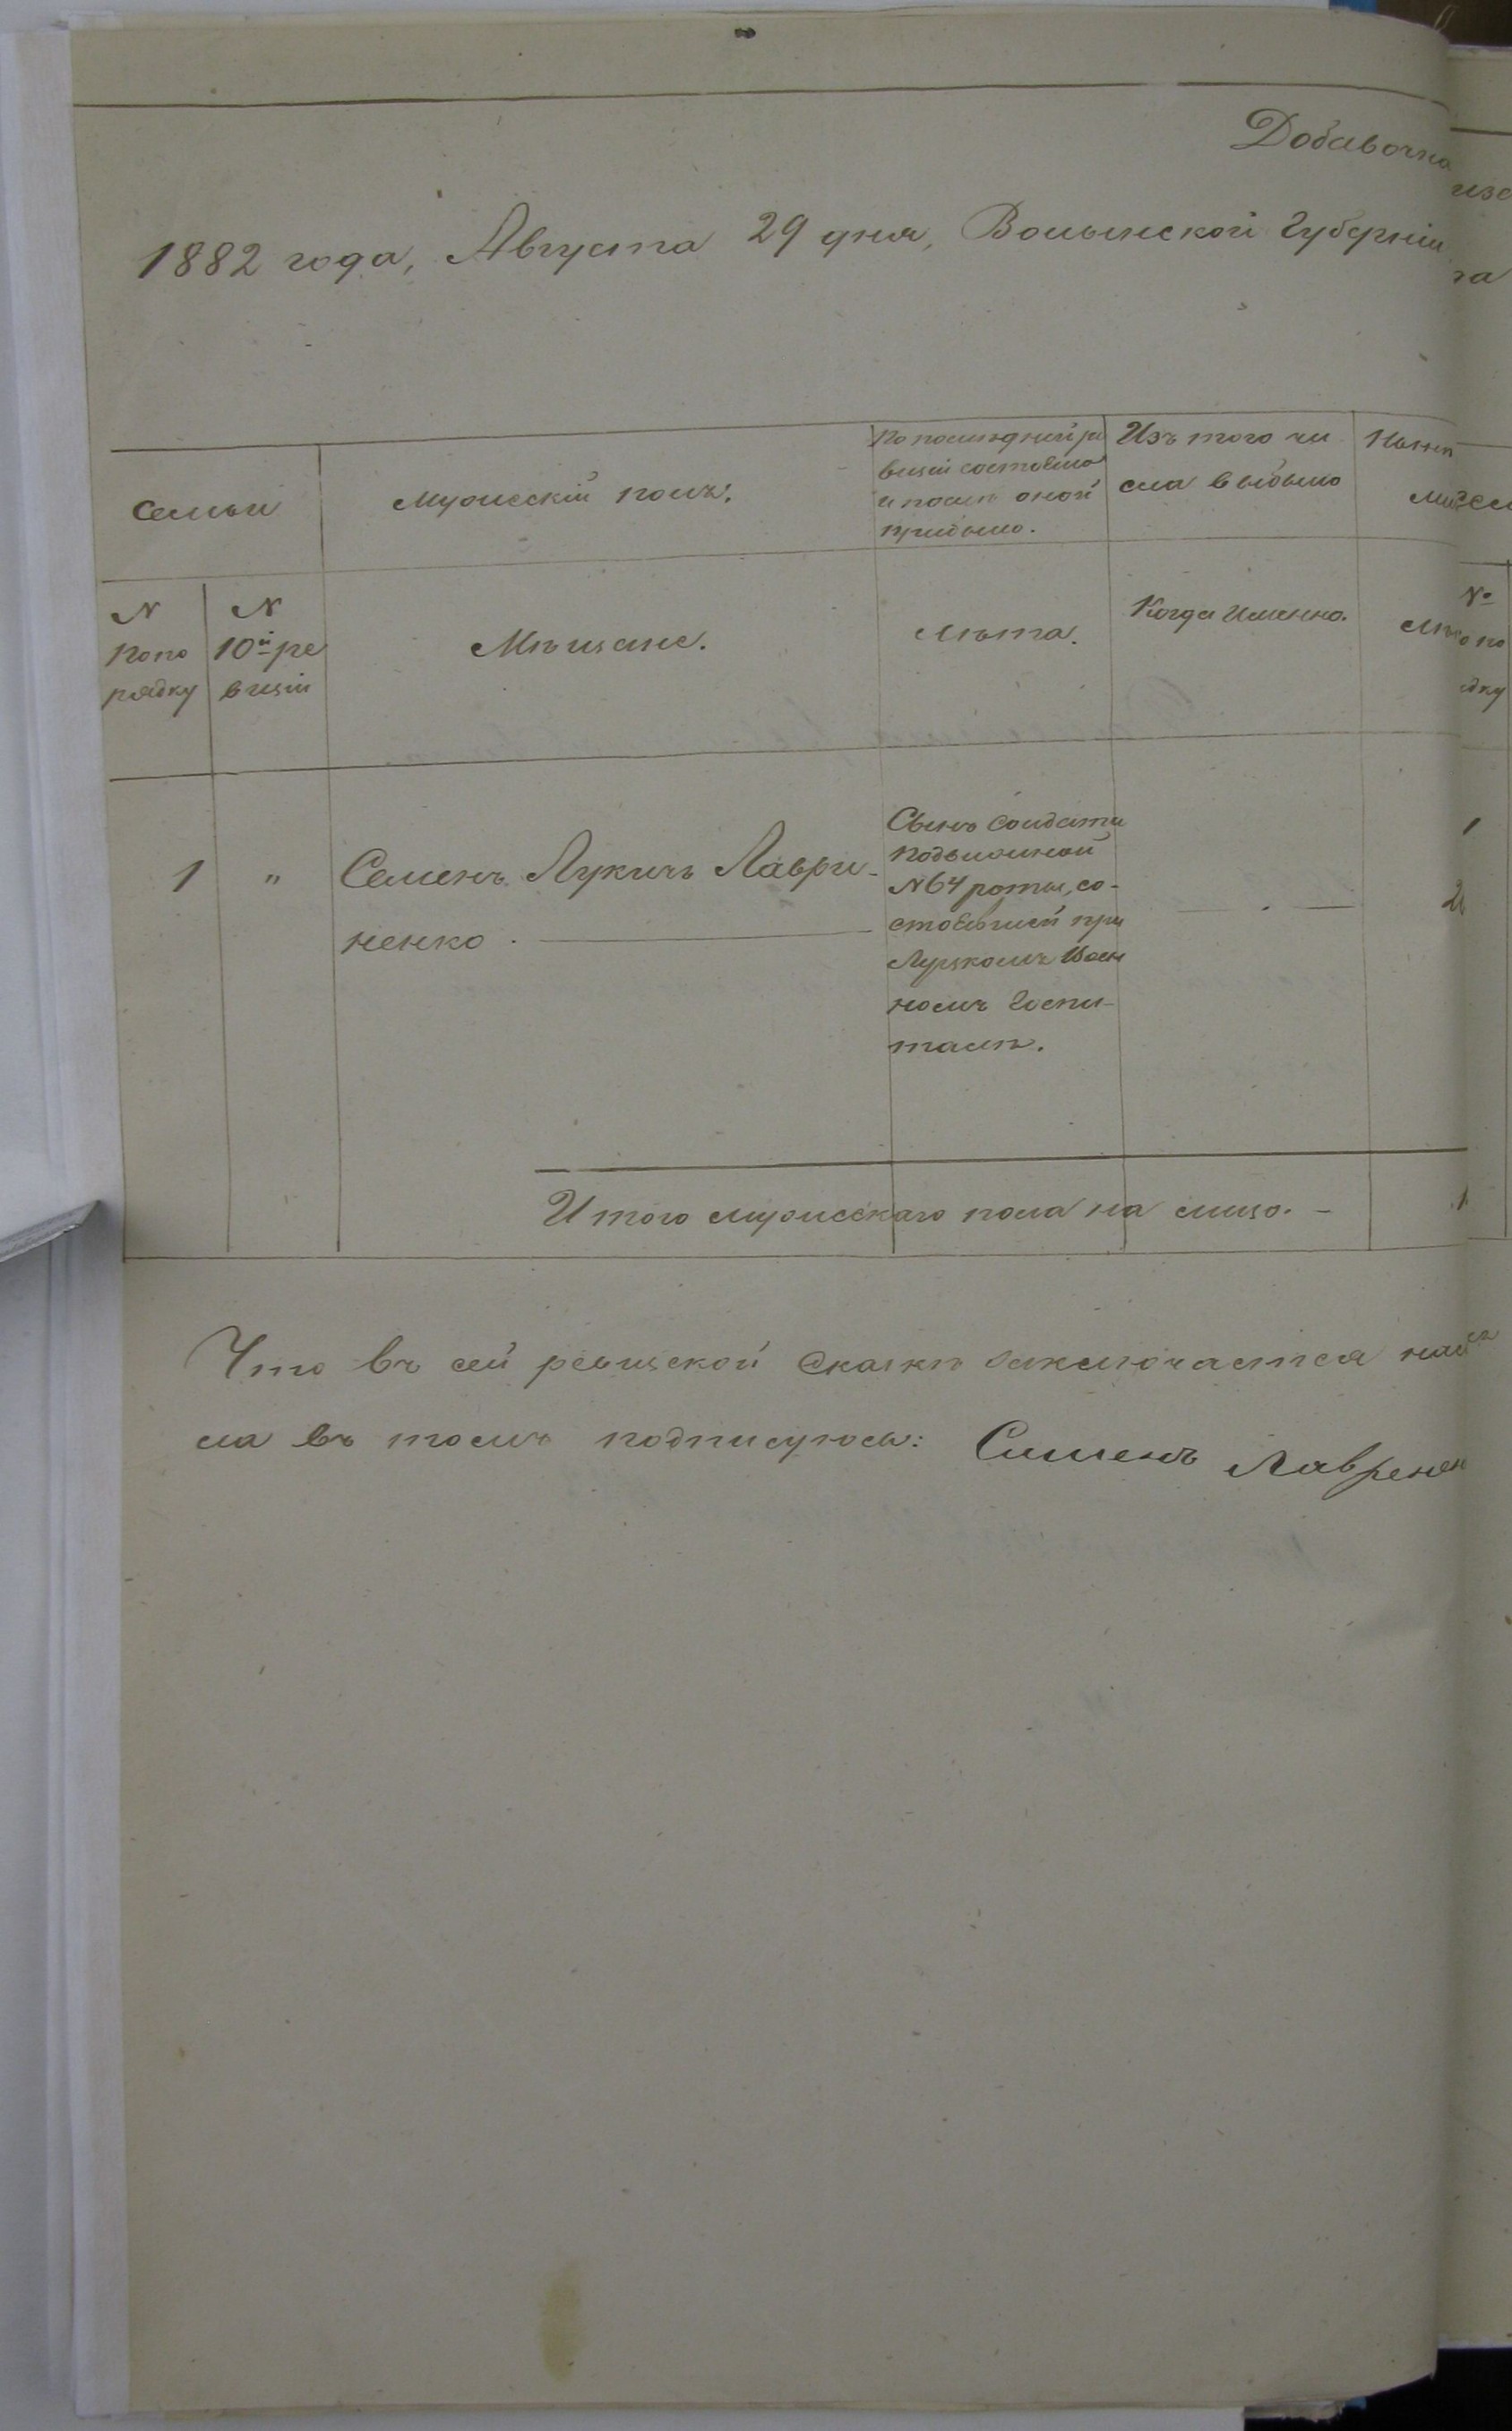 Добавочна
1882 года, Августа 29 дня, Волынской Губерніи
Семьи
Мужескій полъ.
По последней ре
визіи состояло
и послѣ оной
прибыло.
Изъ того чи
сла выбыло
Нынѣ
N
по по
рядку
N
10й ре
визіи
Мѣщане.
Лѣта.
Когда именно.
1 " Семенъ Лукичъ Лаври-
ненко.
Сынъ солдата
подвижной
N 64 роты, со-
стоявшей при
Луцкомъ Воен
номъ Госпи-
талѣ.
Итого мужескаго пола на лицо. - 1
Что въ сей ревизской сказкѣ заключается
ла въ томъ подписуюсь: Сименъ Лавренен